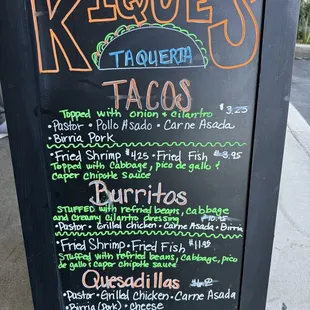 KIQUE'S
TAQUERIA
TACOS
Topped with onion & cilantro $3.25
• Pastor • Pollo Asado • Carne Asada
• Birria Pork
• Fried Shrimp $4.25 • Fried Fish $3.95
Topped with Cabbage, pico de gallo &
caper chipotle sauce
Burritos
STUFFED with refried beans, cabbage
and creamy cilantro dressing
• Pastor • Grilled chicken • Carne Asada • Birria
• Fried Shrimp • Fried Fish
STUFFED with refried beans, cabbage, pico
de gallo & caper chipotle sauce
Quesadillas
• Pastor • Grilled Chicken • Carne Asada
• Birria (Pork) • cheese